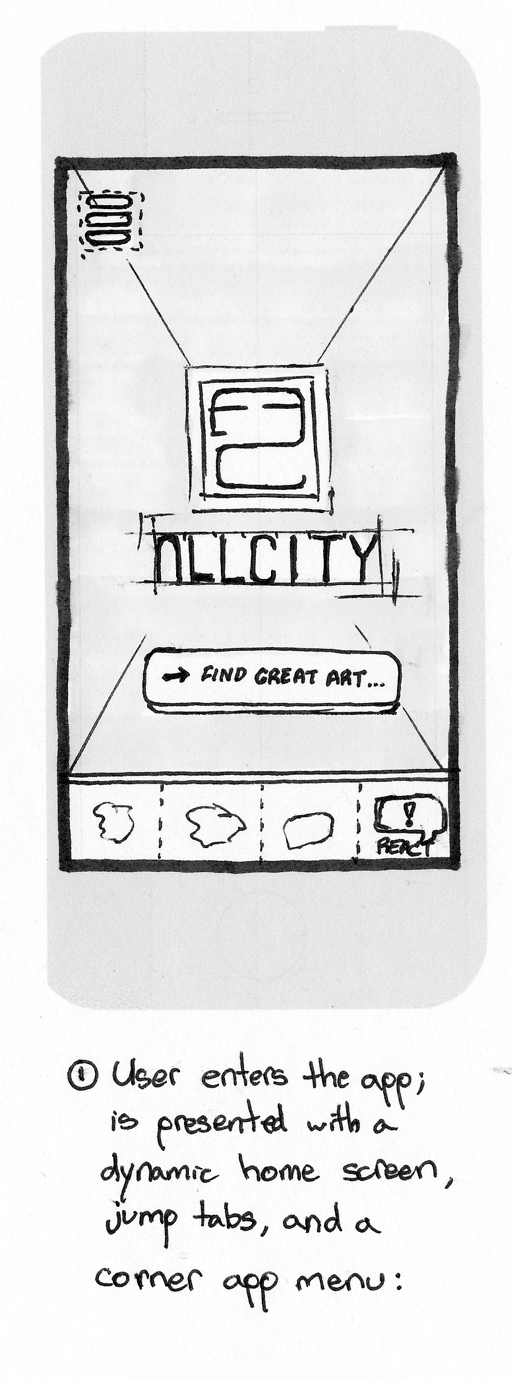 ALLCITY
→ FIND GREAT ART...
!
REACT
① User enters the app;
is presented with a
dynamic home screen,
jump tabs, and a
corner app menu: